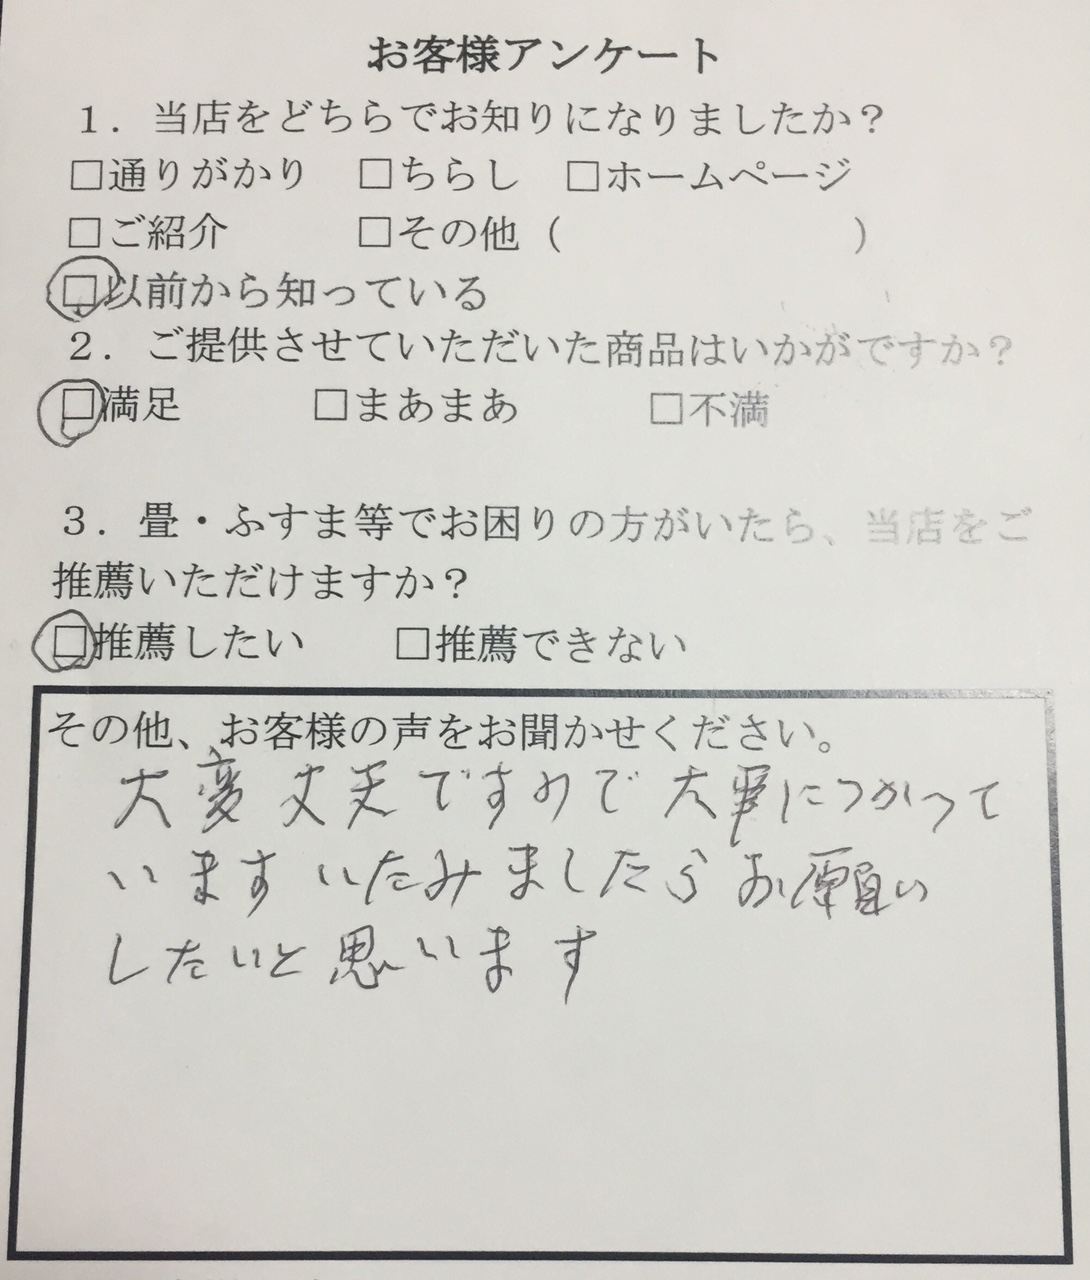 お客様アンケート
１．当店をどちらでお知りになりましたか？
□通りがかり　□ちらし　□ホームページ
□ご紹介　　　□その他（　　　　　　　）
□以前から知っている
２．ご提供させていただいた商品はいかがですか？
□満足　　　□まあまあ　　　□不満
３．畳・ふすま等でお困りの方がいたら、当店をご
推薦いただけますか？
□推薦したい　　□推薦できない
その他、お客様の声をお聞かせください。
大変丈夫ですので大事につかって
います いたみましたらお願い
したいと思います